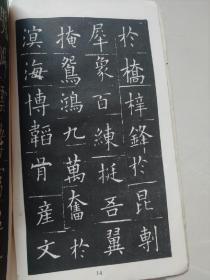 於橋梓鋒於昆剸
犀象百練挺吾翼
掩鴛鴻九萬奮於
溟海博韜胄產文
14